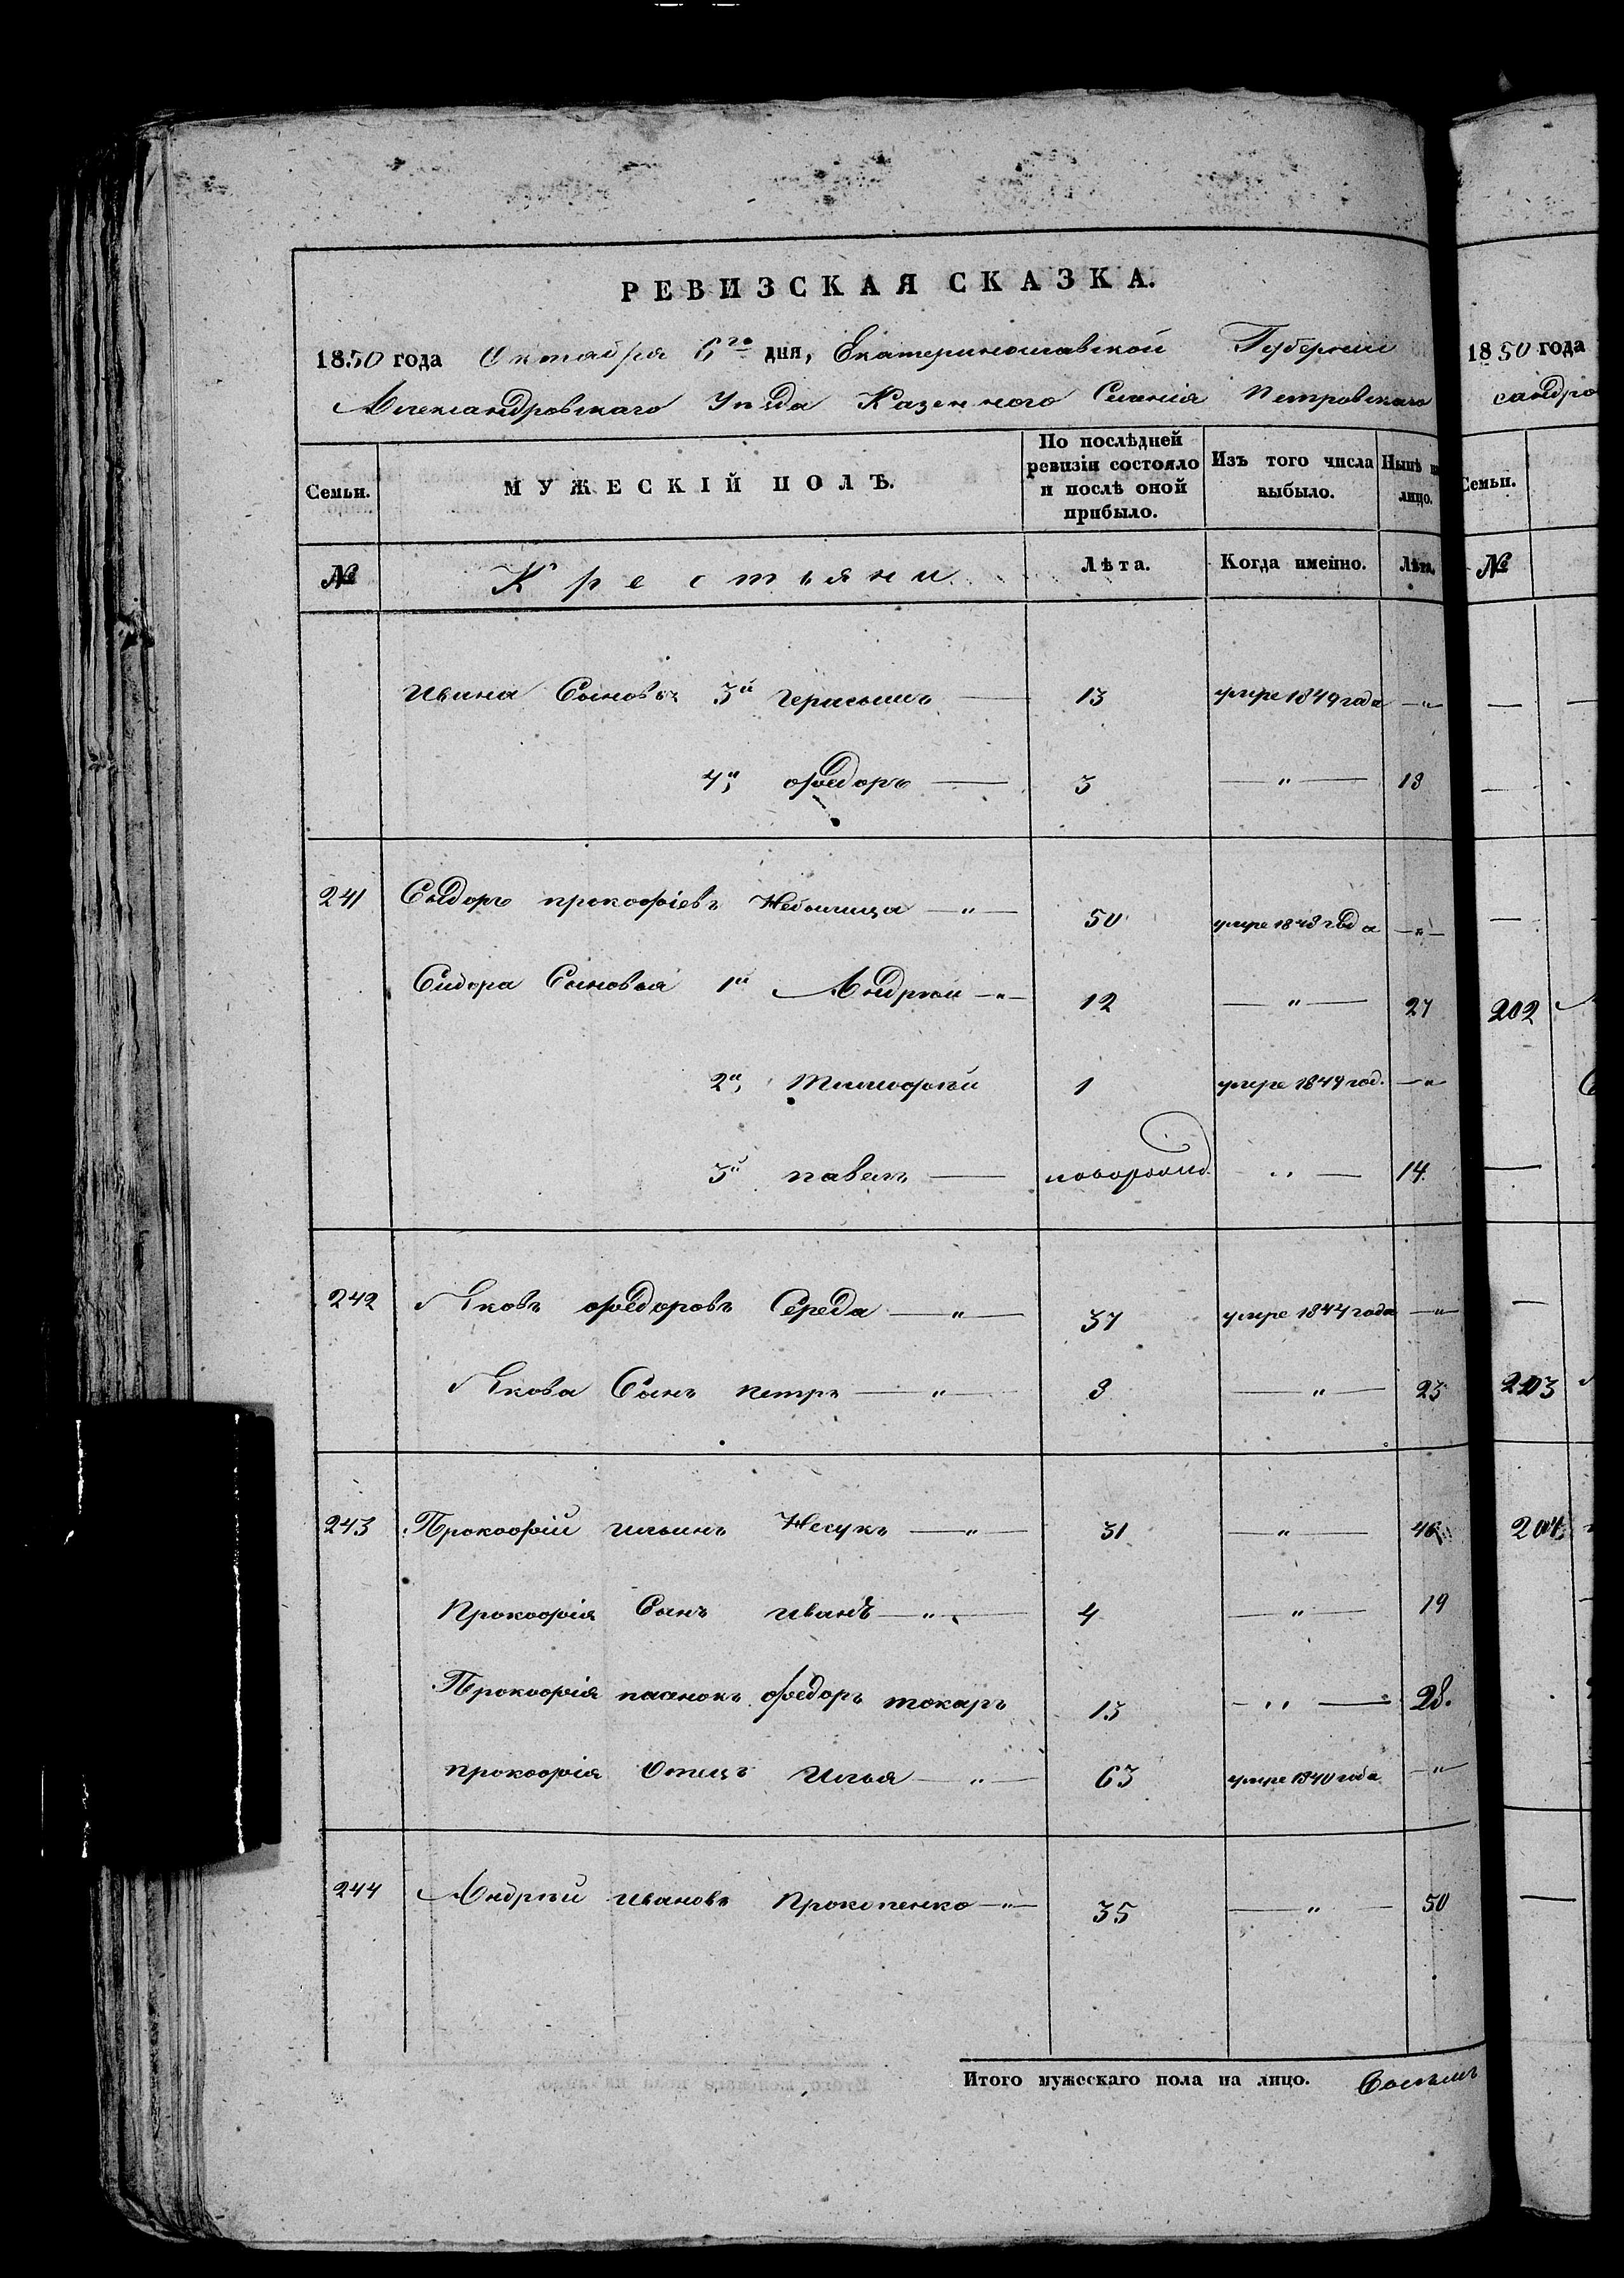 РЕВИЗСКАЯ СКАЗКА.
1850 года Октября 6го дня, Екатеринославской Губернии
Александровскаго Уѣзда Казенного Селенія Петровскаго
Семьи. МУЖЕСКІЙ ПОЛЪ. По послѣдней ревизіи состояло и послѣ оной прибыло. Изъ того числа выбыло. Нынѣ на лицо.
№ Крестьяни Лѣта. Когда именно. Лѣта.
Ивана Сыновья 3й Герасимъ — 13 умре 1849 года —"
4й, Федоръ — 3 —"— 18
241 Сидоръ прокофіевъ —"— 50 умре 1848 года —"—
Сидора Сыновья 1й Андрей —"— 12 —"— 27
2й, Тимофѣй 1 умре 1849 год. —"
3й павелъ — новорожд. "— 14.
242 Яковъ Федоровъ Середа —"— 37 умре 1844 года —"
Якова Сынъ петръ —"— 8 —"— 23
243 Прокофій ильинъ —"— 31 —"— 46
Прокофія Сынъ иванъ —"— 4 —"— 19
Прокофія пасинокъ Федоръ токарь 13 —"— 28.
прокофія Отецъ Илья —"— 63 умре 1840 года —"
244 Андрѣй ивановъ Прокопенко —"— 35 —"— 50
Итого мужескаго пола на лицо. Восемь
1850 года
сандро
Семьи.
№
202
203
204